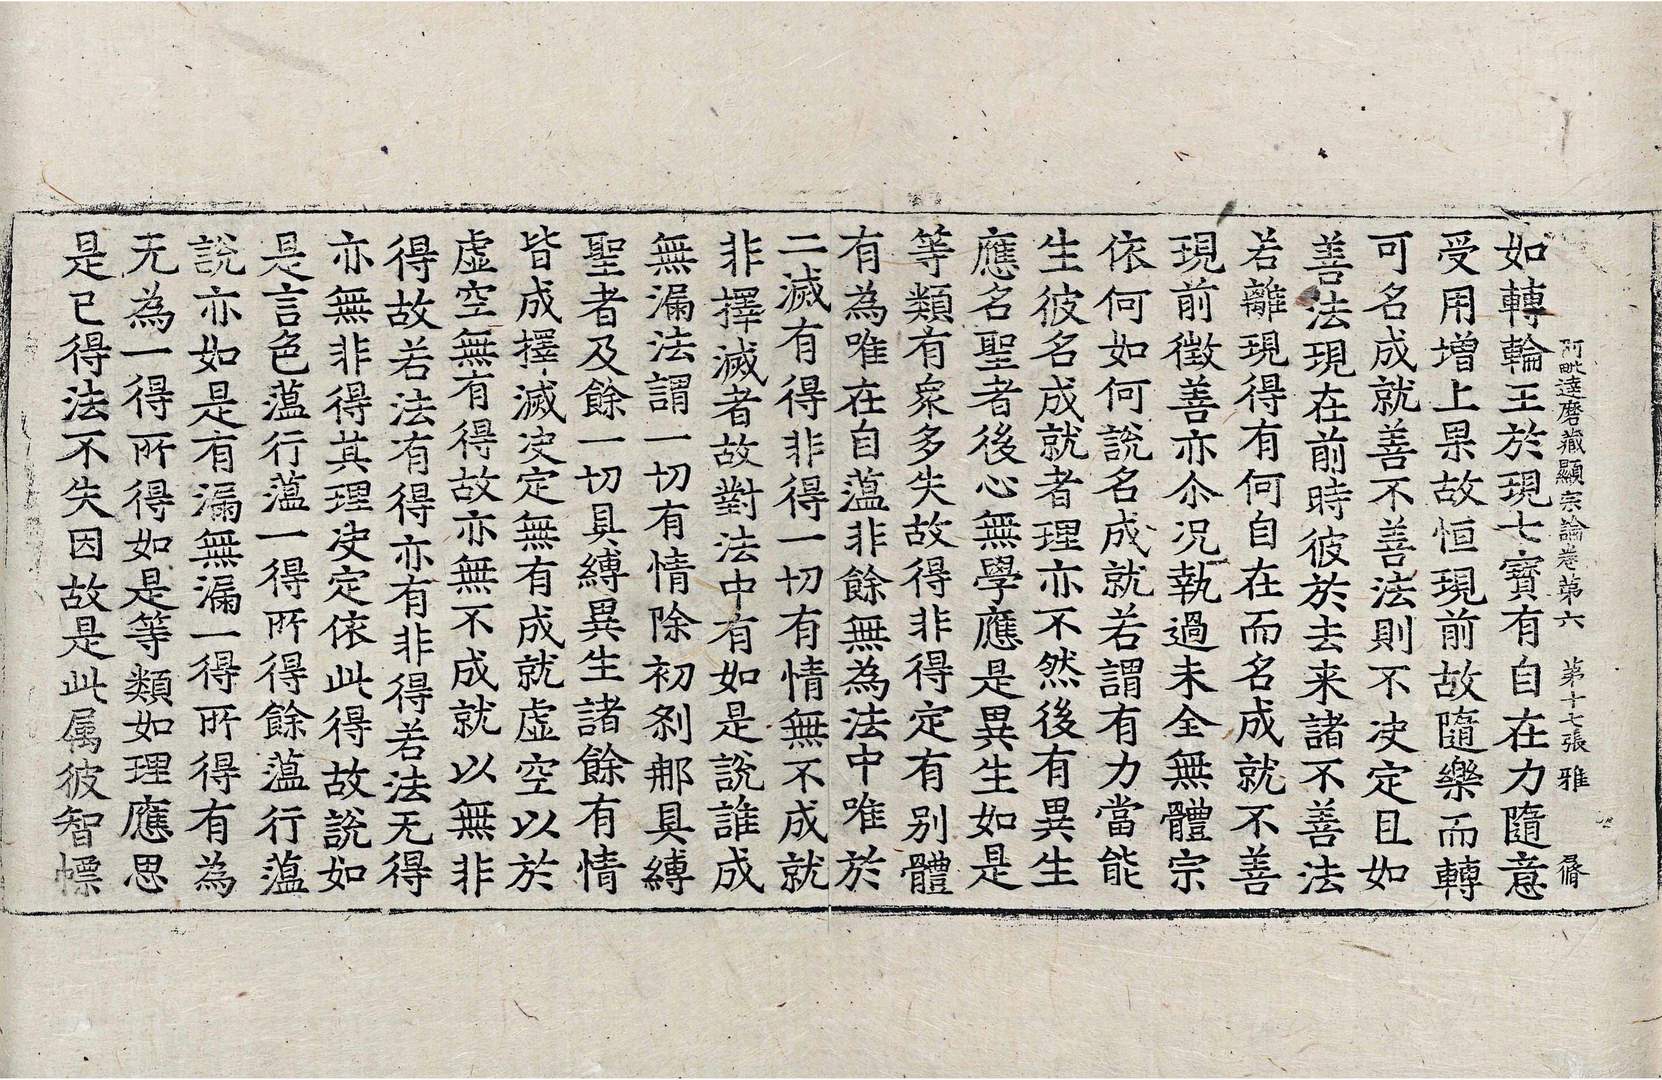 阿毗達磨藏顯宗論卷第六 第十七張 雅
如轉輪王於現七寶有自在力隨意
受用增上果故恒現前故隨樂而轉
可名成就善不善法則不决定且如
善法現在前時彼於去来諸不善法
若離現得有何自在而名成就不善
現前徵善亦尒况執過未全無體宗
依何如何說名成就若謂有力當能
生彼名成就者理亦不然後有異生
應名聖者後心無學應是異生如是
等類有衆多失故得非得定有别體
有為唯在自薀非餘無為法中唯於
二滅有得非得一切有情無不成就
非擇滅者故對法中有如是說誰成
無漏法謂一切有情除初剎那具縛
聖者及餘一切具縛異生諸餘有情
皆成擇滅决定無有成就虛空以於
虛空無有得故亦無不成就以無非
得故若法有得亦有非得若法无得
亦無非得其理决定依此得故說如
是言色薀行薀一得所得餘薀行薀
說亦如是有漏無漏一得所得有為
无為一得所得如是等類如理應思
是已得法不失因故是此属彼智幖